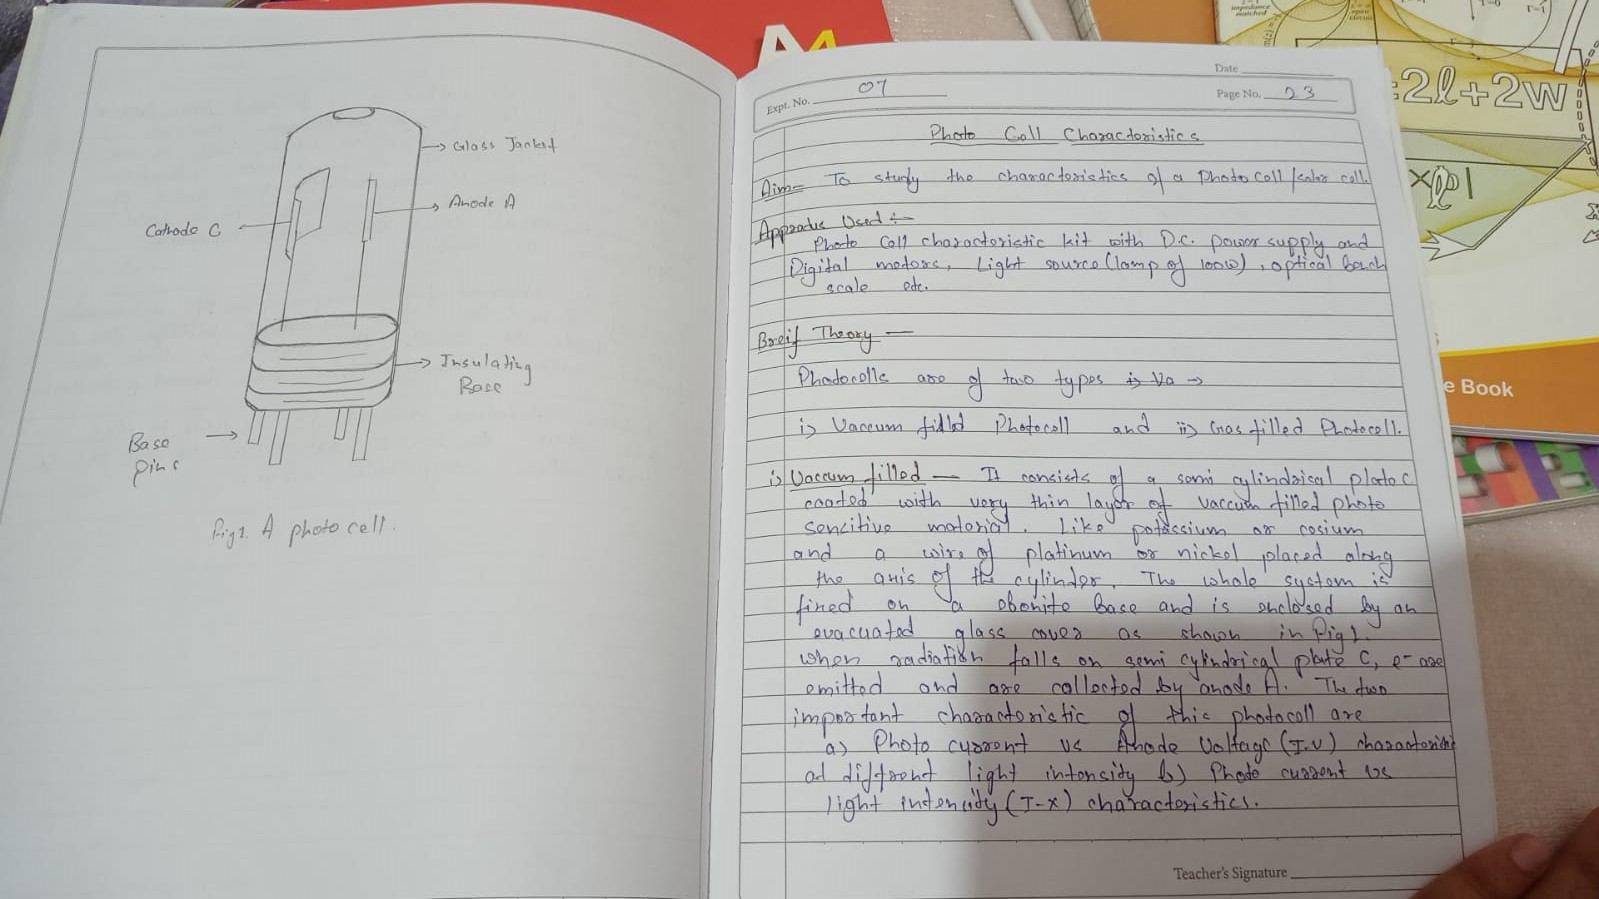 Glass Jacket
Anode A
Cathode C
Insulating
Base
Base
pins
Fig 1. A photo cell.
Date
Expt. No. 07
Page No. 23
Photo Cell Characteristics
Aim - To study the characteristics of a Photo cell / solar cell.
Appratus Used :-
Photo Cell characteristic kit with D.C. power supply and
Digital meters, Light source (lamp of 100w), optical bench
scale etc.
Breif Theory —
Photocells are of two types
i) Vaccum filled Photocell and ii) Gas filled Photocell.
i) Vaccum filled — It consists of a semi cylindrical plate C
coated with very thin layer of vaccum filled photo
sencitive material. Like potassium or cesium
and a wire of platinum or nickel placed along
the axis of the cylinder. The whole system is
fixed on a ebonite base and is enclosed by an
evacuated glass cover as shown in Fig 1.
when radiation falls on semi cylindrical plate C, e- are
emitted and are collected by anode A. The two
important characteristic of this photocell are
a) Photo current vs Anode Voltage (I-V) characteristic
at different light intensity b) Photo current vs
light intencity (I-X) characteristics.
Teacher's Signature
=2l+2w
e Book